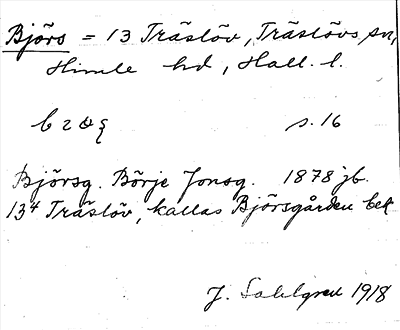 Björs = 13 Träslöv, Träslövs sn,
Himle hd, Hall. l.
s. 16
Björsg. Börje Jonsg. 1878 jb.
13⁴ Träslöv, kallas Björsgården bet
J. Sahlgren 1918